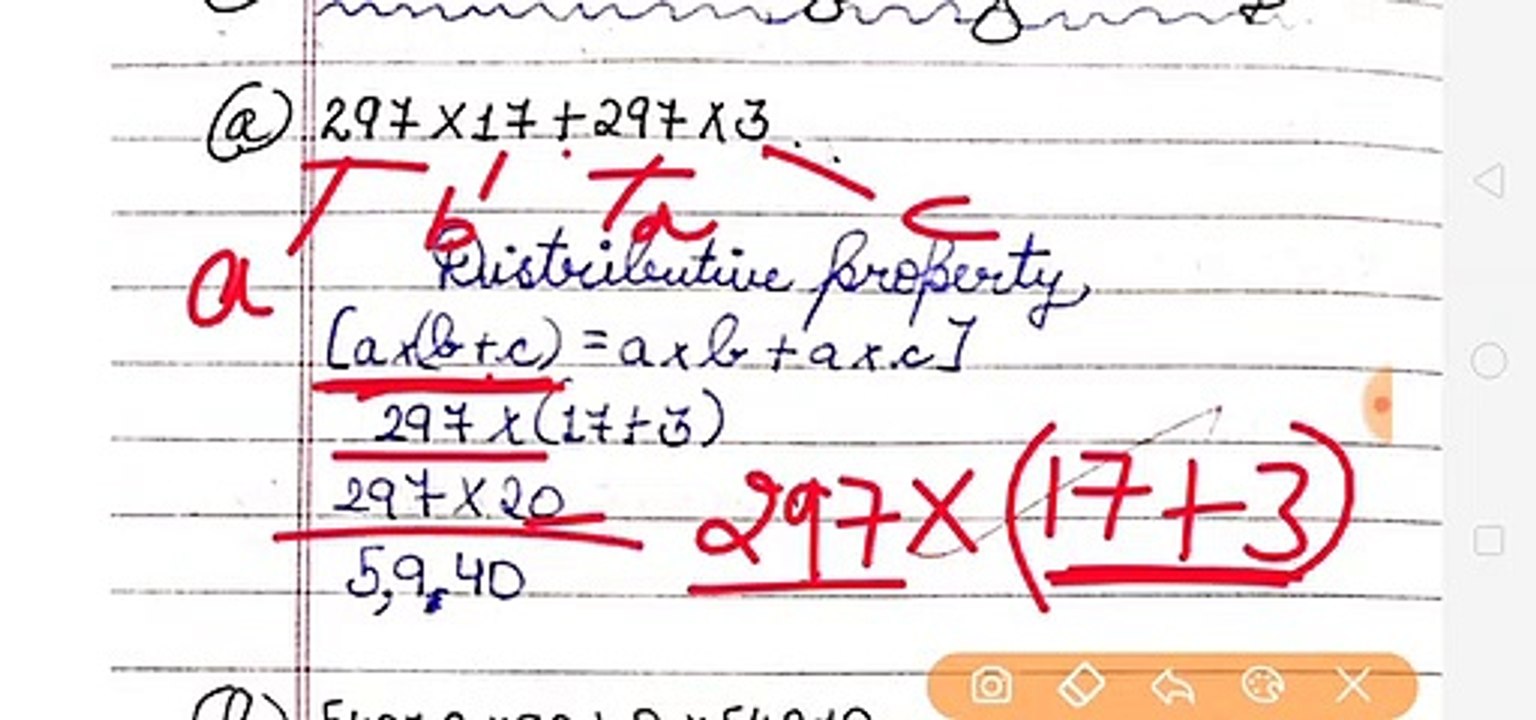 (a) 297 X 17 + 297 X 3
a b a c
Distributive property,
[a x (b + c) = a x b + a x c]
297 X (17 + 3)
297 X 20
297 X (17 + 3)
5,9,40